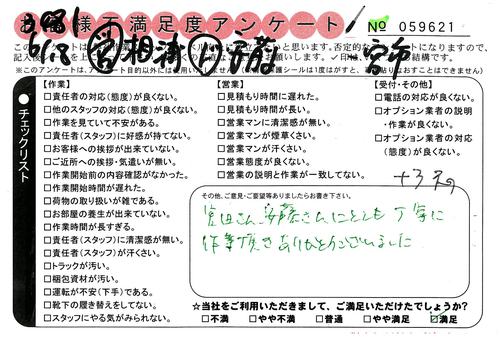 お客様不満足度アンケート
No 059621
【作業】
□責任者の対応(態度)が良くない。
□他のスタッフの対応(態度)が良くない。
□作業を見ていて不安がある。
□責任者(スタッフ)に好感が持てない。
□お客様への挨拶が出来ていない。
□ご近所への挨拶・気遣いが無い。
□作業開始前の内容確認がなかった。
□作業開始時間が遅れた。
□荷物の取り扱いが雑である。
□お部屋の養生が出来ていない。
□作業時間が長すぎる。
□責任者(スタッフ)に清潔感が無い。
□責任者(スタッフ)が汗くさい。
□トラックが汚い。
□梱包資材が汚い。
□運転が不安(下手)である。
□靴下の履き替えをしてない。
□スタッフにやる気がみられない。
チェックリスト
【営業】
□見積もり時間に遅れた。
□見積もり時間が長い。
□営業マンに清潔感が無い。
□営業マンが煙草くさい。
□営業マンが汗くさい。
□営業態度が良くない。
□営業の説明と作業が一致してない。
【受付・その他】
□電話の対応が良くない。
□オプション業者の説明
・作業が良くない。
□オプション業者の対応
(態度)が良くない。
その他、ご意見・ご要望等ありましたらお書き下さい。
さん、安藤さんにとても丁寧に
作業頂きありがとうございました
☆当社をご利用いただきまして、ご満足いただけたでしょうか?
□不満 □やや不満 □普通 □やや満足 ☑満足